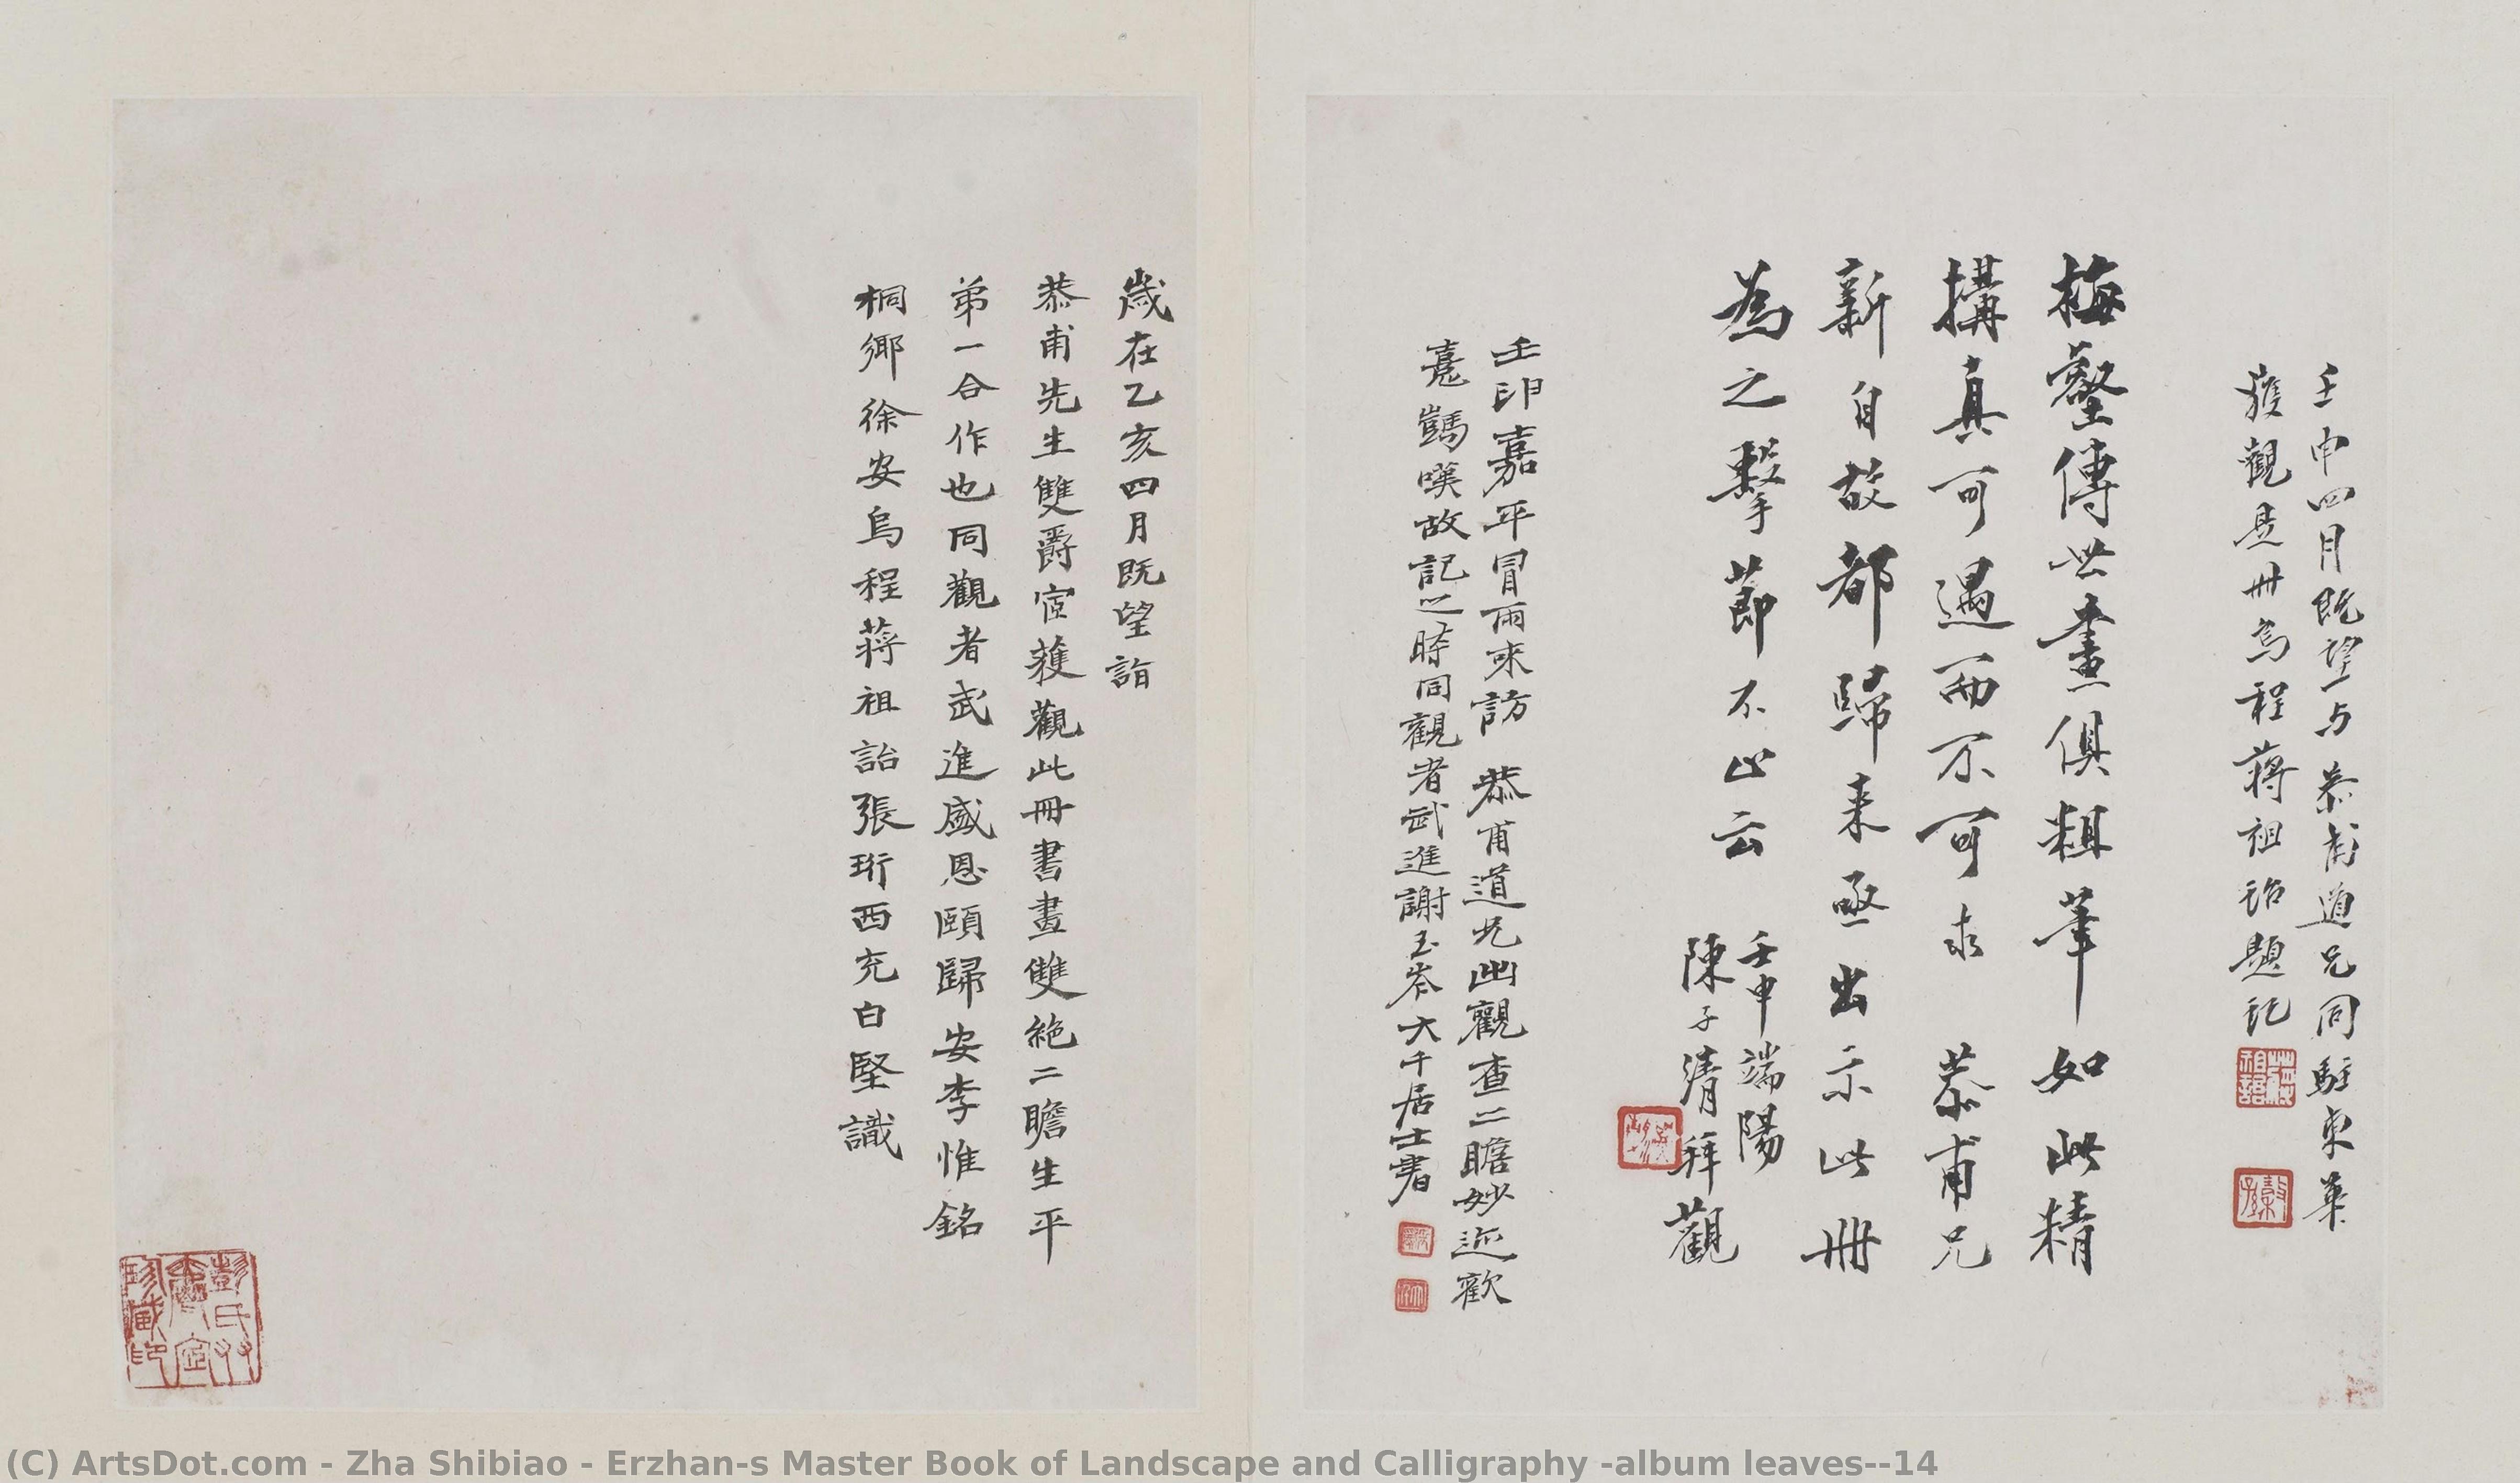 壬申四月既望与恭甫道兄同駐東華
獲觀是冊烏程蔣祖詒題記
梅壑傳世畫俱粗筆如此精
搆真可遇而不可求恭甫兄
新自故都歸来亟出示此冊
為之擊節不止云
壬申端陽
陳子清拜觀
壬申嘉平冒雨来訪恭甫道兄出觀查二瞻妙迹歡
憙贊嘆故記之時同觀者武進謝玉岑大千居士書
歲在乙亥四月既望詣
恭甫先生雙爵宧獲觀此冊書畫雙絶二瞻生平
弟一合作也同觀者武進盛恩頤歸安李惟銘
桐鄉徐安烏程蔣祖詒張珩西充白堅識
蔣祖詒
彭氏
珍藏印
(C) ArtsDot.com - Zha Shibiao - Erzhan-s Master Book of Landscape and Calligraphy -album leaves--14